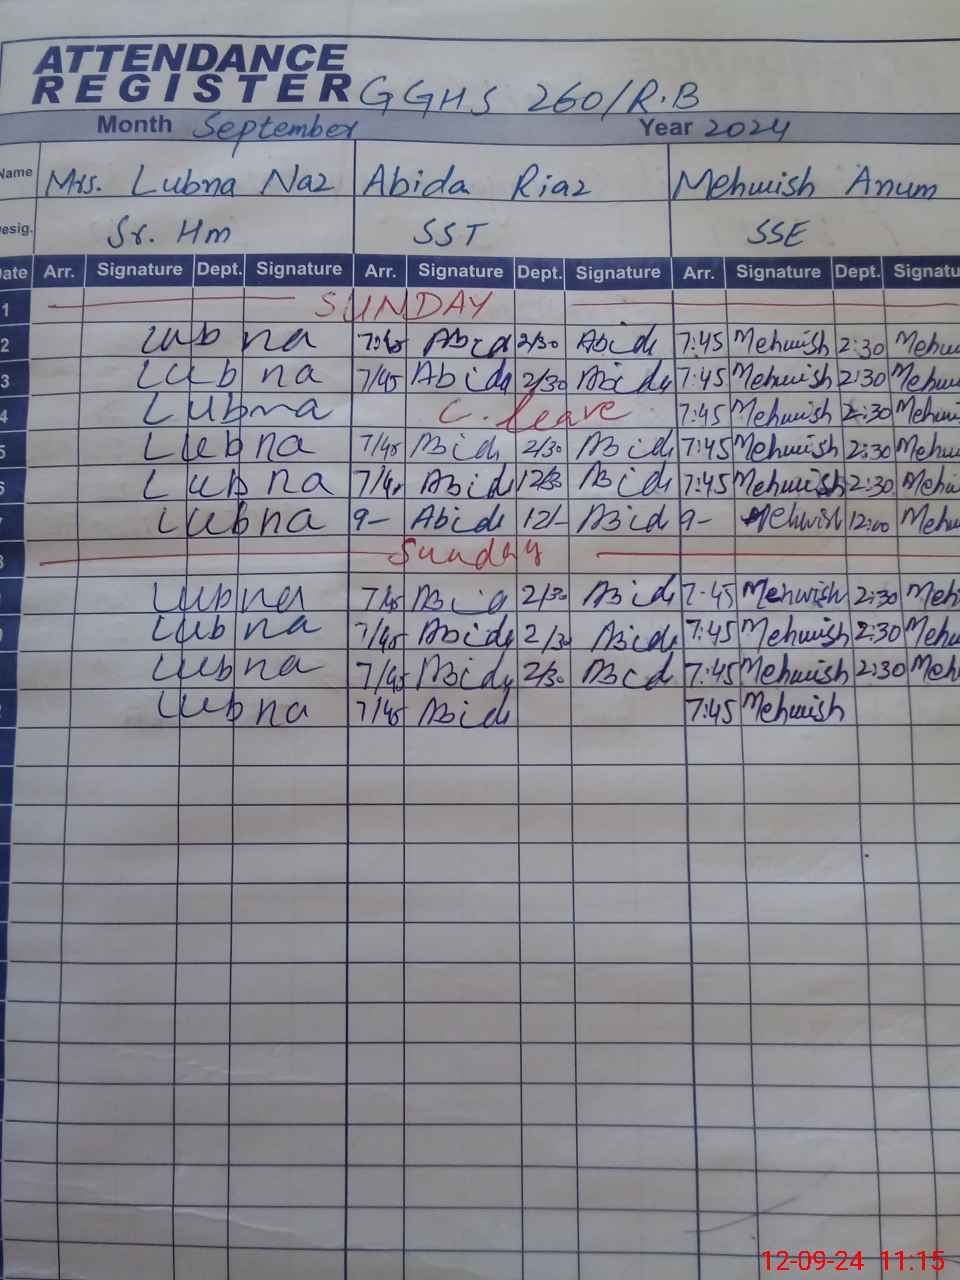 ATTENDANCE
REGISTER GGHS 260/R.B
Month September Year 2024
Name Mrs. Lubna Naz Abida Riaz Mehwish Anum
Desig. Sr. Hm SST SSE
Date Arr. Signature Dept. Signature Arr. Signature Dept. Signature Arr. Signature Dept. Signatu
1 SUNDAY
2 Lubna 7:45 Abida 2/30 Abida 7:45 Mehwish 2:30 Mehw
3 Lubna 7/45 Abida 2/30 Abida 7:45 Mehwish 2:30 Mehw
4 Lubna C. leave 7:45 Mehwish 2:30 Mehw
5 Lubna 7/45 Abida 2/30 Abida 7:45 Mehwish 2:30 Mehw
6 Lubna 7/45 Abida Abida 7:45 Mehwish 2:30 Mehw
7 Lubna 9- Abida 12/- Abida 9- Mehwish 12:00 Mehw
8 Sunday
Lubna 7/45 Abida 2/30 Abida 7:45 Mehwish 2:30 Meh
Lubna 7/45 Abida 2/30 Abida 7:45 Mehwish 2:30 Mehw
Lubna 7/45 Abida 2/30 Abida 7:45 Mehwish 2:30 Meh
Lubna 7/45 Abida 7:45 Mehwish
12-09-24 11:15